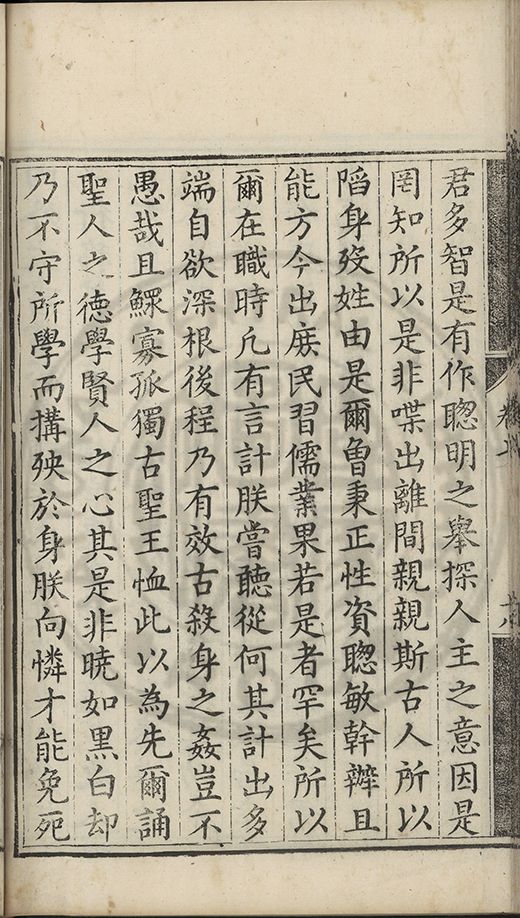 君多智是有作聦明之舉探人主之意因是
罔知所以是非喋出離間親親斯古人所以
䧟身歿姓由是爾魯秉正性資聦敏幹辦且
能方今出庶民習儒業果若是者罕矣所以
爾在職時凡有言計朕嘗聽從何其計出多
端自欲深根後程乃有效古殺身之姦豈不
愚哉且鰥寡孤獨古聖王恤此以為先爾誦
聖人之徳學賢人之心其是非曉如黒白却
乃不守所學而搆殃於身朕向憐才能免死
卷七